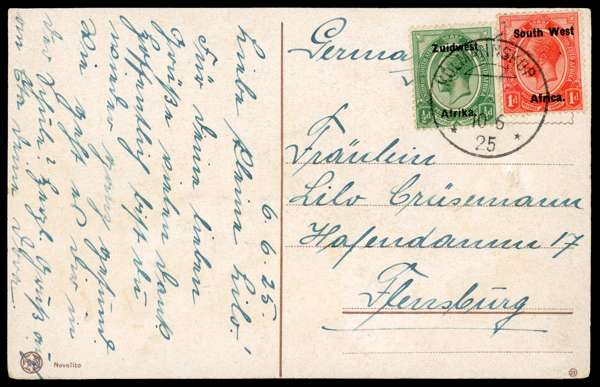 6. 6. 25.
Liebe kleine Lilo!
Für Deine lieben
Grüße vielen Dank
Hoffentlich bist Du
wieder ganz gesund
Wie geht es Dir in
der Schule? Herzl. Grüße
von
Germany
Zuidwest
Afrika.
½d
South West
Africa.
1d 1d
KOLMANNSKOP
10 6
25
Fräulein
Lilo Crüsemann
Hafendamm 17
Flensburg
Novelito